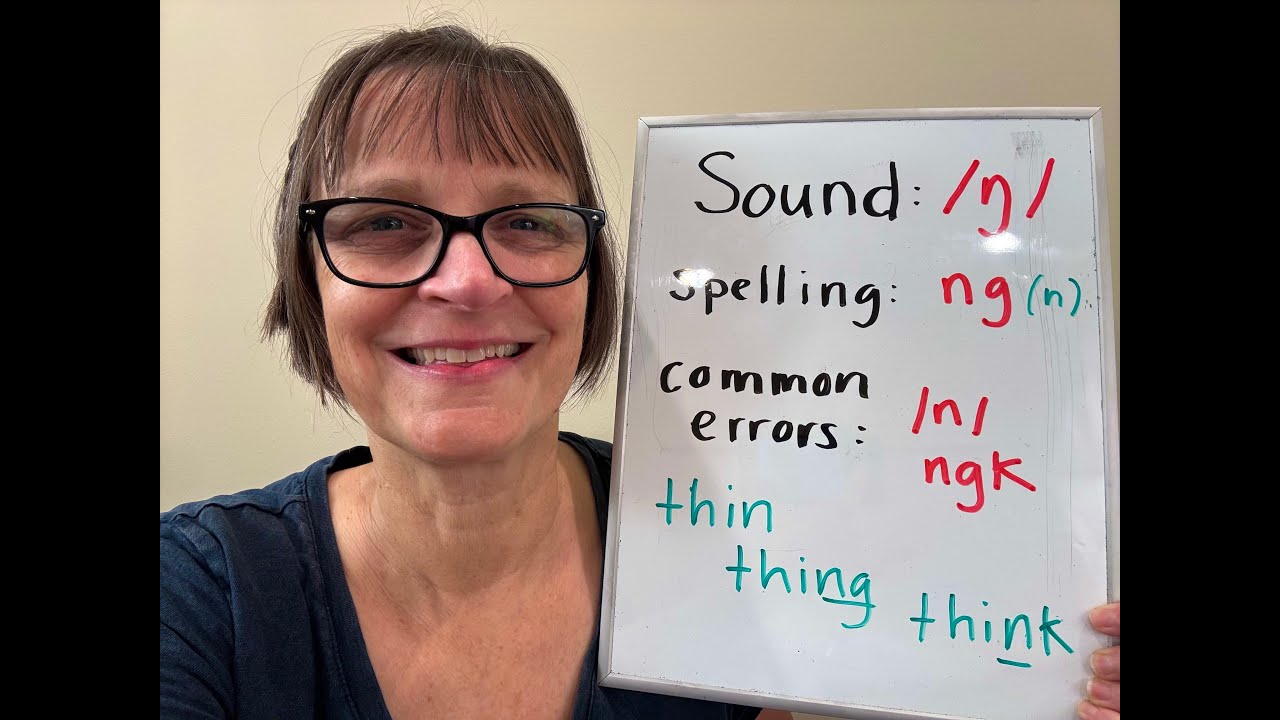 Sound: /ŋ/
Spelling: ng (n)
common
errors: /n/
ngk
thin
thing
think